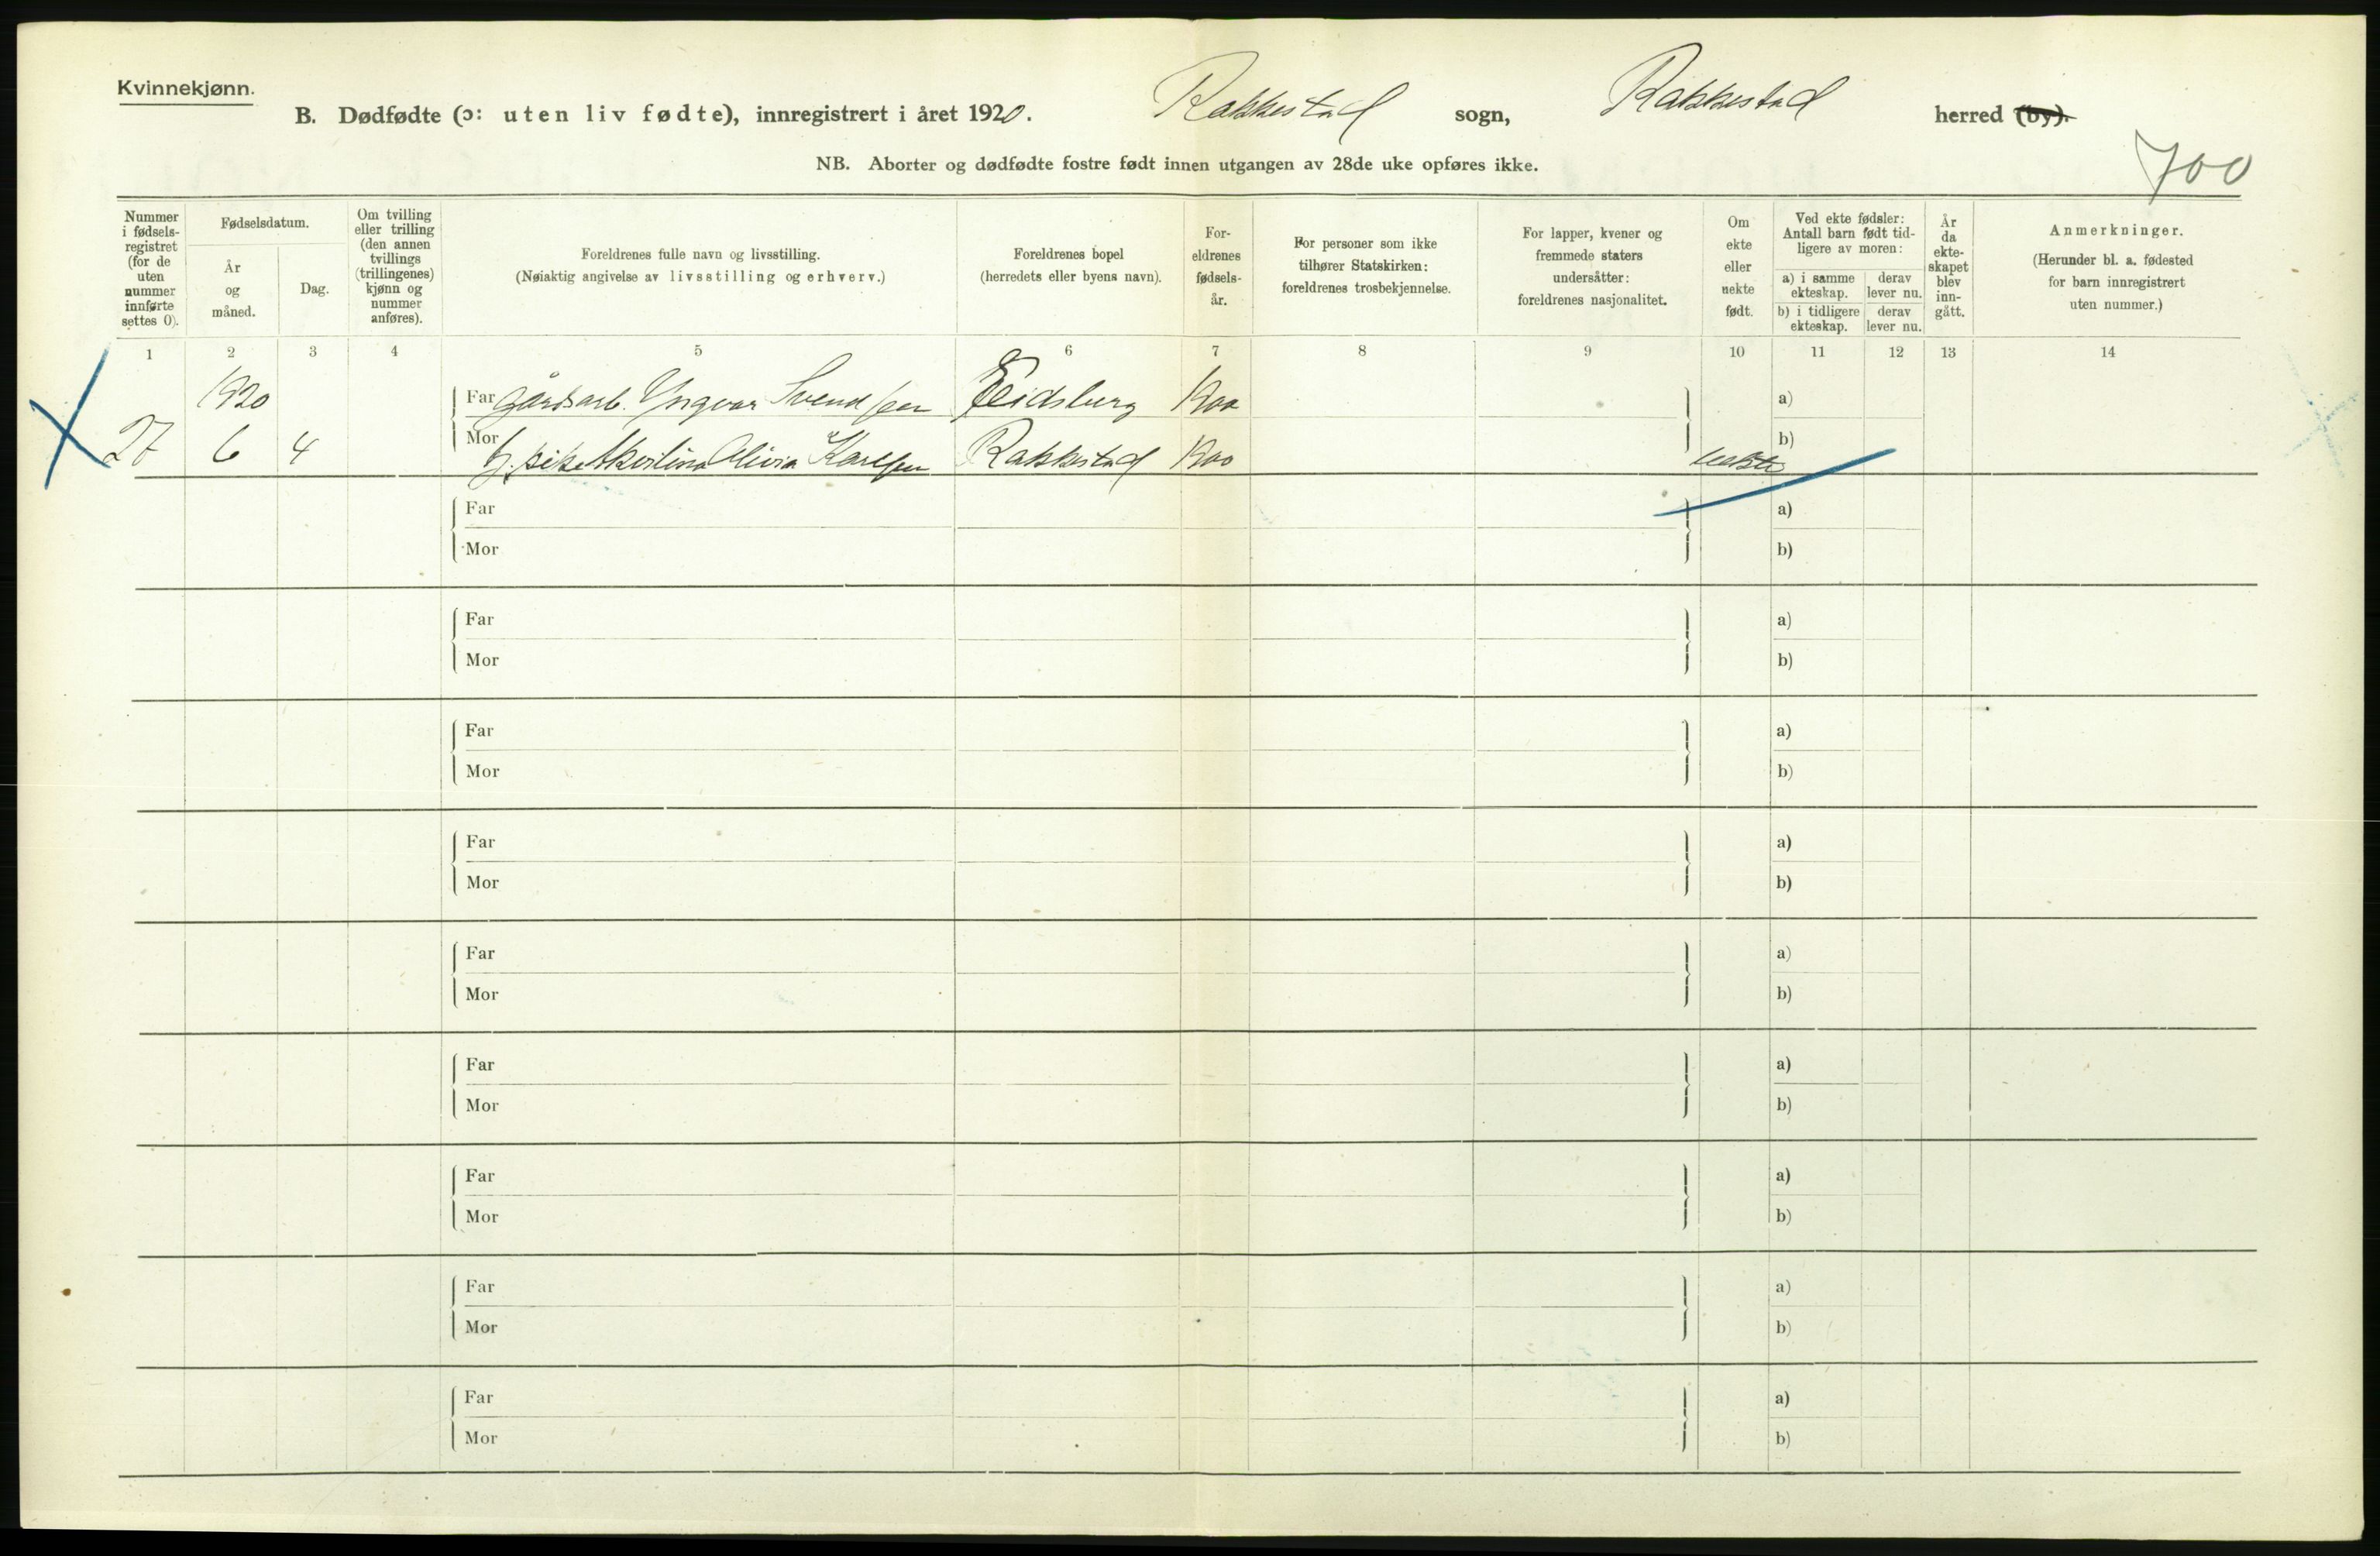 Kvinnekjønn.
B. Dødfødte (ɔ: uten liv fødte), innregistrert i året 1920. Rakkestad sogn, Rakkestad herred (by).
NB. Aborter og dødfødte fostre født innen utgangen av 28de uke opføres ikke.
700
Nummer i fødsels-
registret
(for de
uten
nummer
innførte
settes 0).
Fødselsdatum.
År
og
måned.
Dag.
Om tvilling
eller trilling
(den annen
tvillings
(trillingenes)
kjønn og
nummer
anføres).
Foreldrenes fulle navn og livsstilling.
(Nøiaktig angivelse av livsstilling og erhverv.)
Foreldrenes bopel
(herredets eller byens navn).
For-
eldrenes
fødsels-
år.
For personer som ikke
tilhører Statskirken:
foreldrenes trosbekjennelse.
For lapper, kvener og
fremmede staters
undersåtter:
foreldrenes nasjonalitet.
Om
ekte
eller
uekte
født.
Ved ekte fødsler:
Antall barn født tid-
ligere av moren:
a) i samme
ekteskap.
derav
lever nu.
b) i tidligere
ekteskap.
derav
lever nu.
År
da
ekte-
skapet
blev
inn-
gått.
Anmerkninger.
(Herunder bl. a. fødested
for barn innregistrert
uten nummer.)
1 2 3 4 5 6 7 8 9 10 11 12 13 14
1920 Far gårdsarb. Yngvar Svendsen Eidsberg 1900 a)
27 6 4 Mor pike Olivia Karlsen Rakkestad 1900 uekte b)
Far a)
Mor b)
Far a)
Mor b)
Far a)
Mor b)
Far a)
Mor b)
Far a)
Mor b)
Far a)
Mor b)
Far a)
Mor b)
Far a)
Mor b)
Far a)
Mor b)